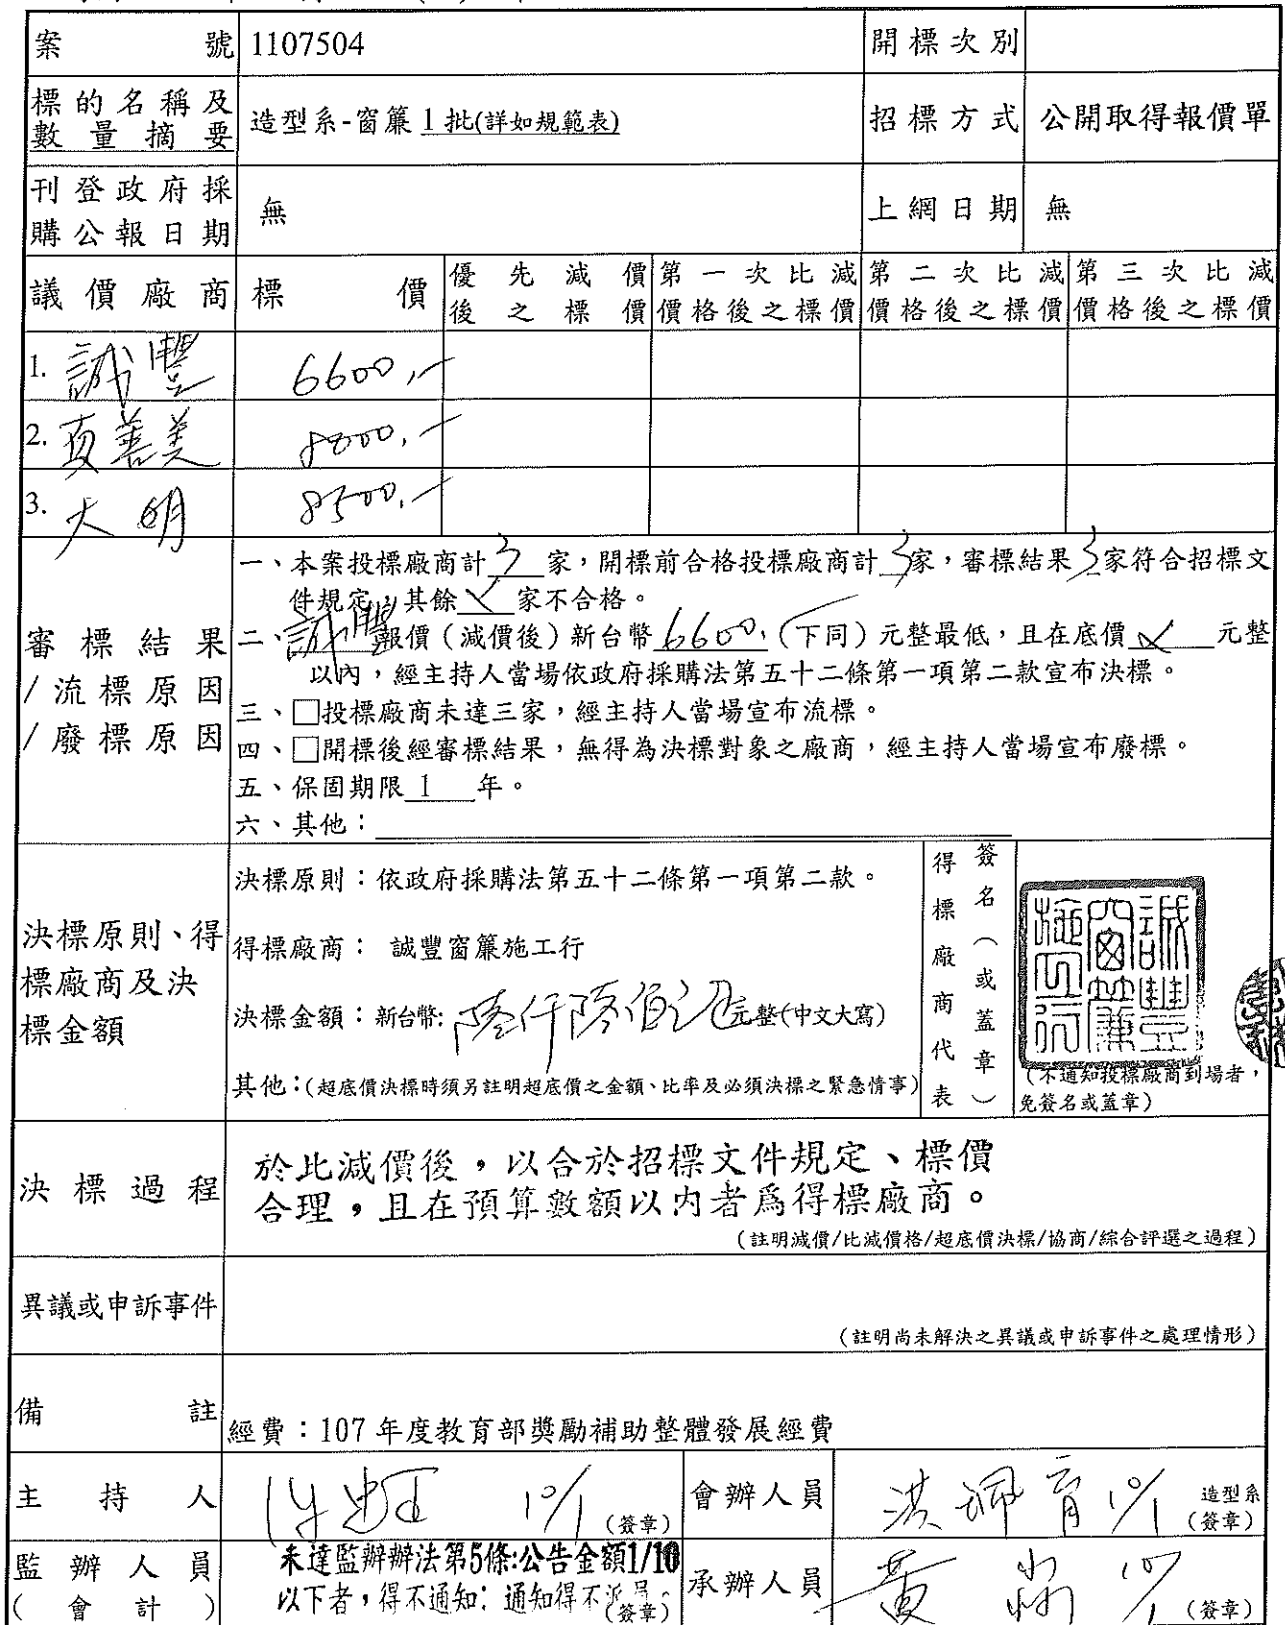 案號 1107504 開標次別
標的名稱及數量摘要 造型系-窗簾1批(詳如規範表) 招標方式 公開取得報價單
刊登政府採購公報日期 無 上網日期 無
議價廠商 標價 優先減價後之標價 第一次比減價格後之標價 第二次比減價格後之標價 第三次比減價格後之標價
1. 誠豐 6600,-
2. 真善美 8000,-
3. 大明 8500,-
審標結果/流標原因/廢標原因
一、本案投標廠商計3家,開標前合格投標廠商計3家,審標結果3家符合招標文
件規定,其餘╳家不合格。
二、誠豐報價(減價後)新台幣6600,(下同)元整最低,且在底價╳元整
以內,經主持人當場依政府採購法第五十二條第一項第二款宣布決標。
三、□投標廠商未達三家,經主持人當場宣布流標。
四、□開標後經審標結果,無得為決標對象之廠商,經主持人當場宣布廢標。
五、保固期限1年。
六、其他:
決標原則、得標廠商及決標金額
決標原則:依政府採購法第五十二條第一項第二款。
得標廠商: 誠豐窗簾施工行
決標金額:新台幣:陸仟陸佰元整(中文大寫)
其他:(超底價決標時須另註明超底價之金額、比率及必須決標之緊急情事)
得標廠商代表
簽名(或蓋章)
誠豐窗簾施工行
(不通知投標廠商到場者,
免簽名或蓋章)
決標過程
於比減價後,以合於招標文件規定、標價
合理,且在預算數額以內者爲得標廠商。
(註明減價/比減價格/超底價決標/協商/綜合評選之過程)
異議或申訴事件
(註明尚未解決之異議或申訴事件之處理情形)
備註 經費:107年度教育部獎勵補助整體發展經費
主持人 10/1 (簽章) 會辦人員 洪珮育 10/1 造型系
(簽章)
監辦人員(會計)
未達監辦辦法第5條:公告金額1/10
以下者,得不通知;通知得不派員。
(簽章)
承辦人員 黃 10/1 (簽章)